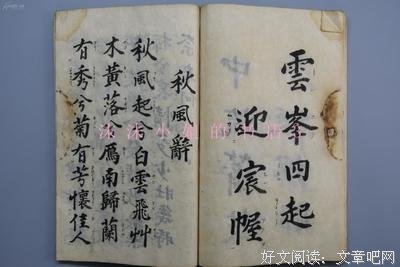 雲峯四起
迎宸幄
秋風辭
秋風起兮白雲飛艸
木黃落兮鴈南歸蘭
有秀兮菊有芳懷佳人
沫沫小姐的
好文阅读：文章吧网